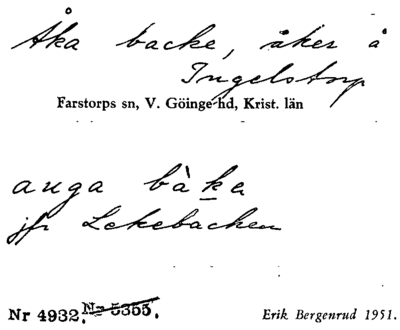 Åka backe, åker å
Ingelstorp
Farstorps sn, V. Göinge hd, Krist. län
auga bàka
jfr Lekebacken
Nr 4932. Nr 5355.
Erik Bergenrud 1951.